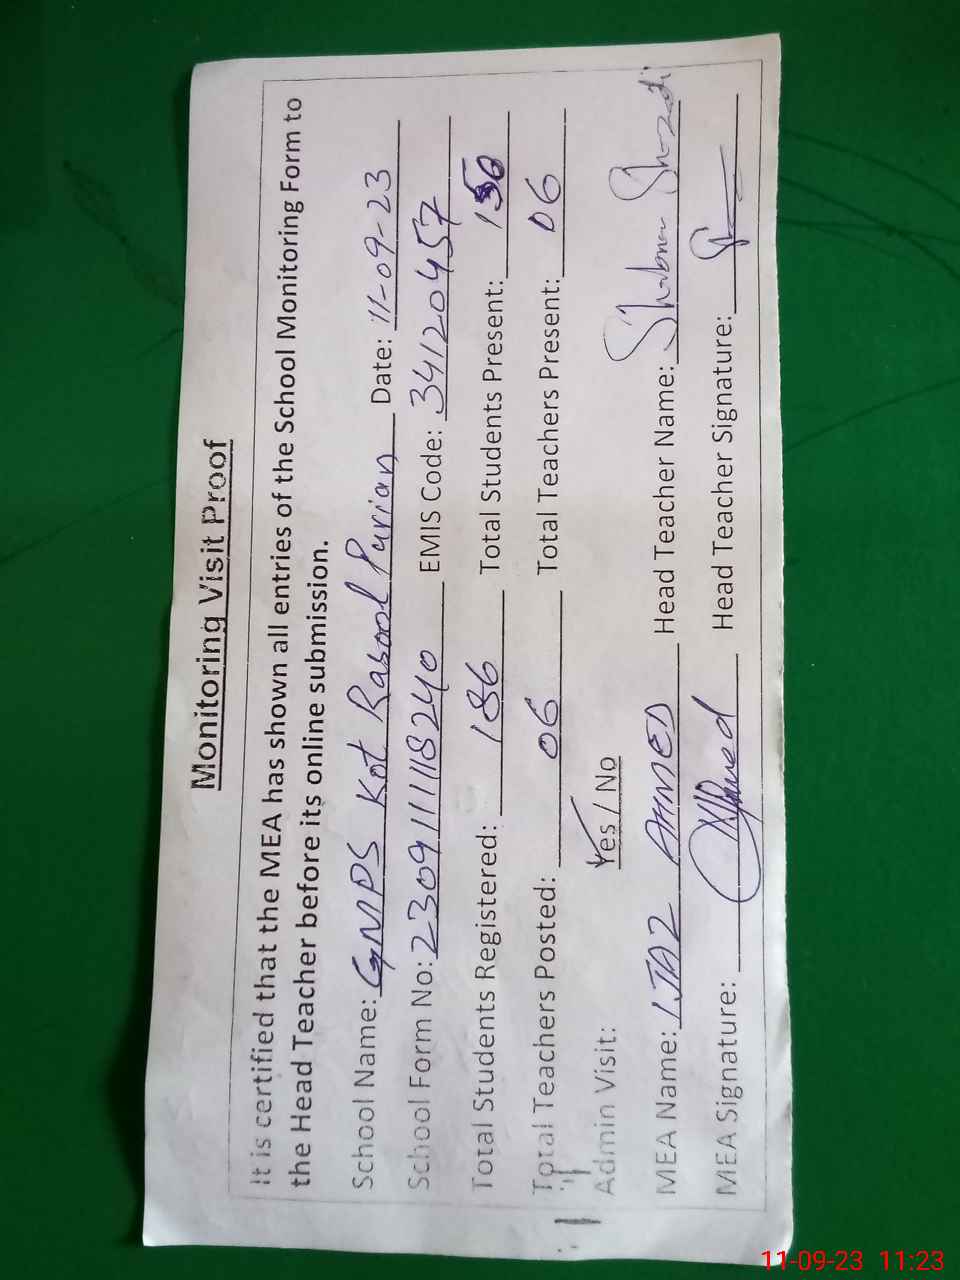 Monitoring Visit Proof
It is certified that the MEA has shown all entries of the School Monitoring Form to
the Head Teacher before its online submission.
School Name: GMPS Kot Rasool Purian Date: 11-09-23
School Form No: 2309111118240 EMIS Code: 34120457
Total Students Registered: 186 Total Students Present: 150
Total Teachers Posted: 06 Total Teachers Present: 06
Admin Visit: Yes / No
MEA Name: IJAZ AHMED Head Teacher Name: Shabnam Shazadi
MEA Signature: Head Teacher Signature:
11-09-23 11:23